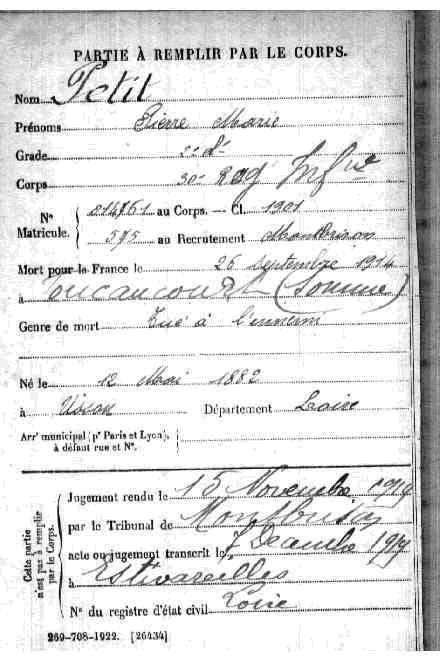 PARTIE À REMPLIR PAR LE CORPS.
Nom Petit
Prénoms Pierre Marie
Grade 2e Sl
Corps 30e Reg Infie
Nº Matricule. 014761 au Corps. — Cl. 1901
575 au Recrutement Montbrison
Mort pour la France le 26 septembre 1914
à (Somme)
Genre de mort Tué à l'ennemi
Né le 12 Mai 1882
à Usson Département Loire
Arrt municipal (pr Paris et Lyon), à défaut rue et Nº.
Cette partie n'est pas à remplir par le Corps.
Jugement rendu le 15 Novembre 1919
par le Tribunal de Montbrison
acte ou jugement transcrit le 7 Décembre 1919
à Estivareilles
Nº du registre d'état civil Loire
269-708-1922. [26434]